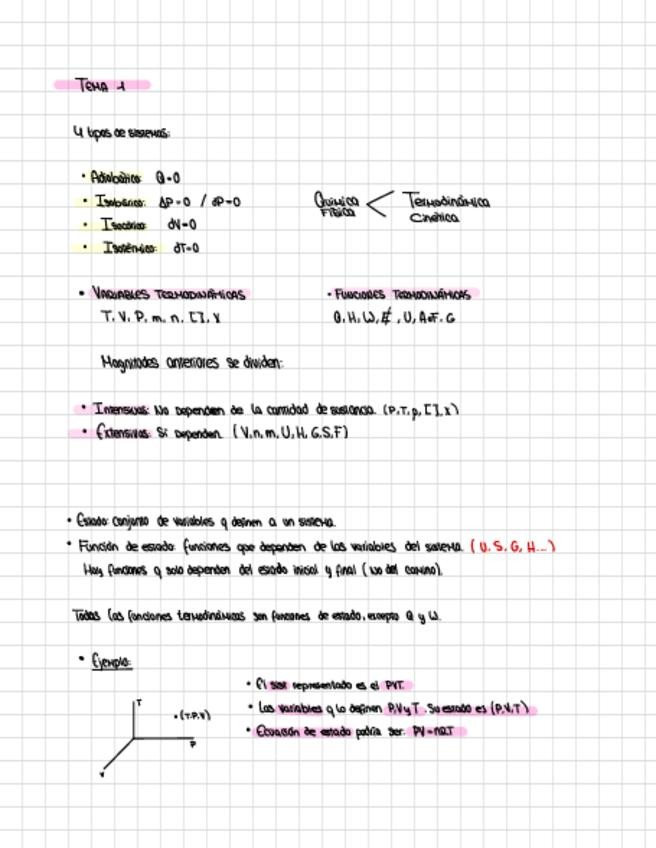 TEMA 1
4 tipos de sistemas:
• Adiabático: Q=0
• Isobárico: ΔP=0 / dP=0
• Isocórico: dV=0
• Isotérmico: dT=0
Química Física < Termodinámica
Cinética
• VARIABLES TERMODINÁMICAS
T, V, P, m, n, [ ], X
• FUNCIONES TERMODINÁMICAS
Q, H, W, U, A o F, G
Magnitudes anteriores se dividen:
• Intensivas: No dependen de la cantidad de sustancia. (P, T, ρ, [ ], x)
• Extensivas: Sí dependen. (V, n, m, U, H, G, S, F)
• Estado: conjunto de variables q definen a un sistema.
• Función de estado: funciones que dependen de las variables del sistema. (U, S, G, H...)
Hay funciones q solo dependen del estado inicial y final (no del camino).
Todas las funciones termodinámicas son funciones de estado, excepto Q y W.
• Ejemplo:
T
• (T.P.V)
P
V
• El representado es el PVT.
• Las variables q lo definen P,V y T. Su estado es (P,V,T)
• Ecuación de estado podría ser: PV=nRT